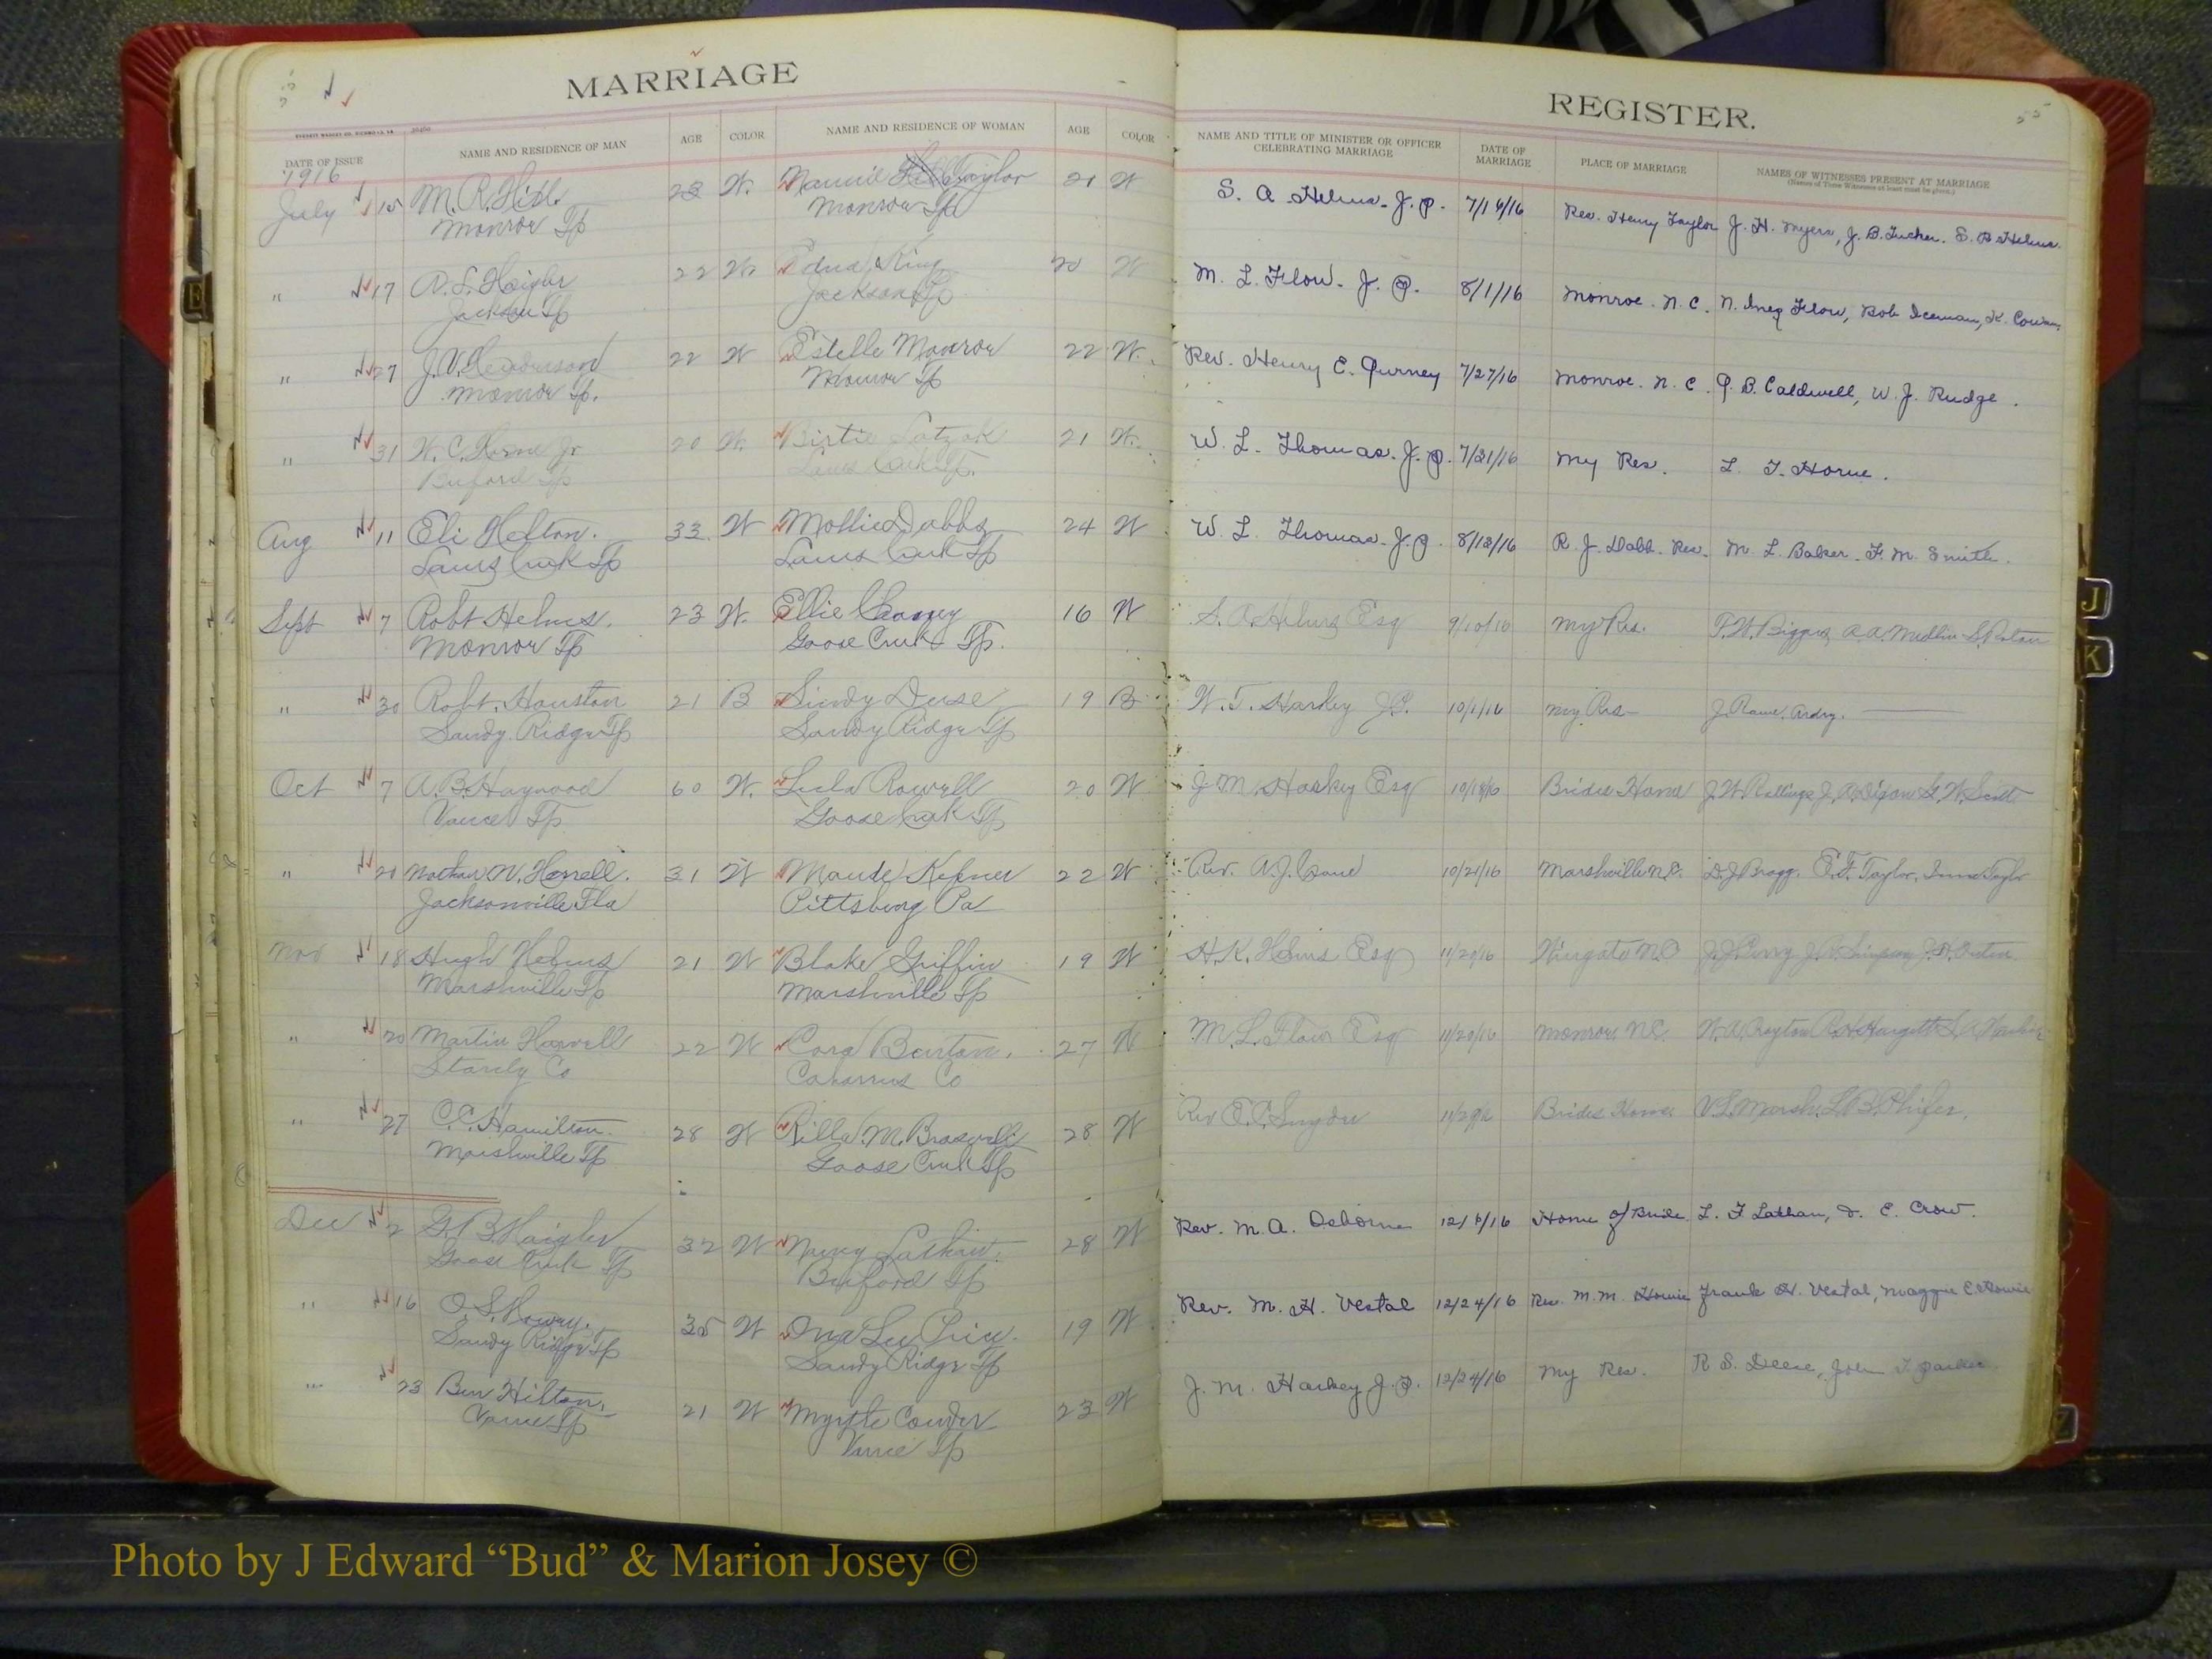 MARRIAGE
DATE OF ISSUE NAME AND RESIDENCE OF MAN AGE COLOR NAME AND RESIDENCE OF WOMAN AGE COLOR
1916
July 15 M. R. Hill 23 W. Nannie Taylor 21 W
Monroe Tp Monroe Tp
" 17 A. L. Haigler 22 W. Edna King 20 W
Jackson Tp Jackson Tp
" 27 J. V. Henderson 22 W Estelle Monroe 22 W.
Monroe Tp. Monroe Tp
" 31 W. C. Horne Jr 20 W. Birtie 21 W.
Buford Tp Lanes Creek Tp.
Aug 11 Eli Helton. 33 W Mollie Dabbs 24 W
Lanes Creek Tp Lanes Creek Tp
Sept 7 Robt Helms. 23 W. Ellie 16 W
Monroe Tp Goose Creek Tp.
" 30 Robt. Houston 21 B Sindy Deese 19 B
Sandy Ridge Tp Sandy Ridge Tp
Oct 7 A. B. Haywood 60 W. Lula Rowell 20 W
Vance Tp Goose Creek Tp
" 21 Nathan N. Harrell. 31 W Maude Kepner 22 W
Jacksonville Fla Pittsburg Pa
Nov 18 Hugh Helms 21 W Blake Griffin 19 W
Marshville Tp Marshville Tp
" 20 Martin Harvell 22 W Cora Burton. 27 W
Stanly Co Cabarrus Co
" 27 C. C. Hamilton 28 W Rilla M. Braswell 28 W
Marshville Tp Goose Creek Tp
Dec 2 G. B. Haigler 32 W Nancy 28 W
Goose Creek Tp Buford Tp
" 16 O. S. 35 W Ona Lee Price. 19 W
Sandy Ridge Tp Sandy Ridge Tp
" 23 Ben Hilton. 21 W Myrtle Conder 23 W
Vance Tp Vance Tp
REGISTER.
55
NAME AND TITLE OF MINISTER OR OFFICER CELEBRATING MARRIAGE DATE OF MARRIAGE PLACE OF MARRIAGE NAMES OF WITNESSES PRESENT AT MARRIAGE
(Names of Three Witnesses at least must be given.)
S. A. Helms. J. P. 7/16/16 Res. Henry Taylor J. H. Myers, J. B. Tucker. S. B. Helms.
M. L. Flow. J. P. 8/1/16 Monroe. N. C. N. Inez Flow, Bob Iceman, K.
Rev. Henry E. Gurney 7/27/16 Monroe. N. C. J. B. Caldwell, W. J. Rudge.
W. L. Thomas. J. P. 7/31/16 My Res. L. T. Horne.
W. L. Thomas. J. P. 8/13/16 R. J. Dabb. Res. M. L. Baker. F. M. Smith.
S. A. Helms Esq 9/10/16 My Res. P. W. Biggers, A. A. Medlin
W. T. Harkey J. P. 10/1/16 My Res J. Rowe. Ardry.
J. M. Harkey Esq 10/18/16 Brides Home J. W. Rollings
Rev. A. J. 10/21/16 Marshville N. C. D. J. Bragg. E. F. Taylor. Taylor
H. K. Helms Esq 11/20/16 Wingate N. C J. J. Perry J. Simpson
M. L. Flow Esq 11/20/16 Monroe. N. C. W. A.
Rev E. C. Snyder Brides Home. V. L. Marsh. L. B. Phifer.
Rev. M. A. Osborne 12/6/16 Home of Bride. L. F. Lathan, D. E. Crow.
Rev. M. H. Vestal 12/24/16 Res. M. M. Howie Frank H. Vestal, Maggie E. Howie
J. M. Harkey J. P. 12/24/16 My Res. R. S. Deese, John T. Parker
E
J
K
Z
Photo by J Edward “Bud” & Marion Josey ©